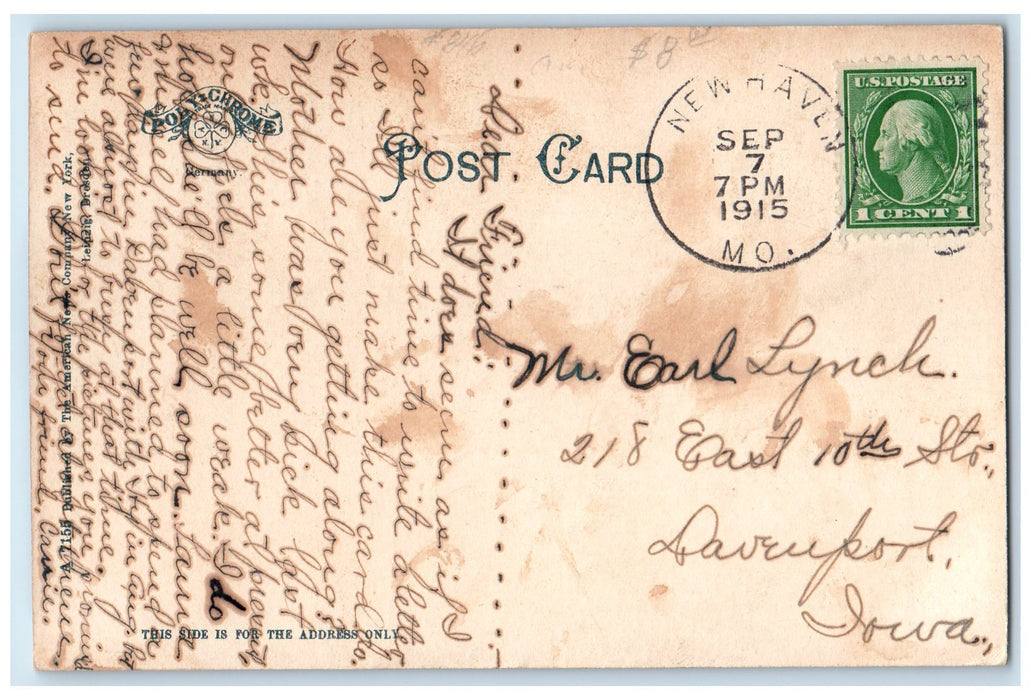 $8.00
POST CARD
NEW HAVEN
SEP
7
7 PM
1915
MO.
U.S. POSTAGE
1 CENT 1
POLY-CHROME
Germany.
A-7155 Published by The American News Company, New York,
Leipzig, Dresden
THIS SIDE IS FOR THE ADDRESS ONLY.
Dear Friend:
It does seem as if I
can't find time to write a letter
so I'll just make this card do.
How are you getting along?
Mother was very sick last
week. She is some better at present
only a little weak. I do
hope she'll be well soon. Laura
Irene had planned to spend a
few days in Davenport with in Aug. but
was to busy at that time.
I'm looking for the pictures you promised
to send. Your friend, Carrie.
Mr. Earl Lynch.
218 East 10th Str.,
Davenport,
Iowa.,